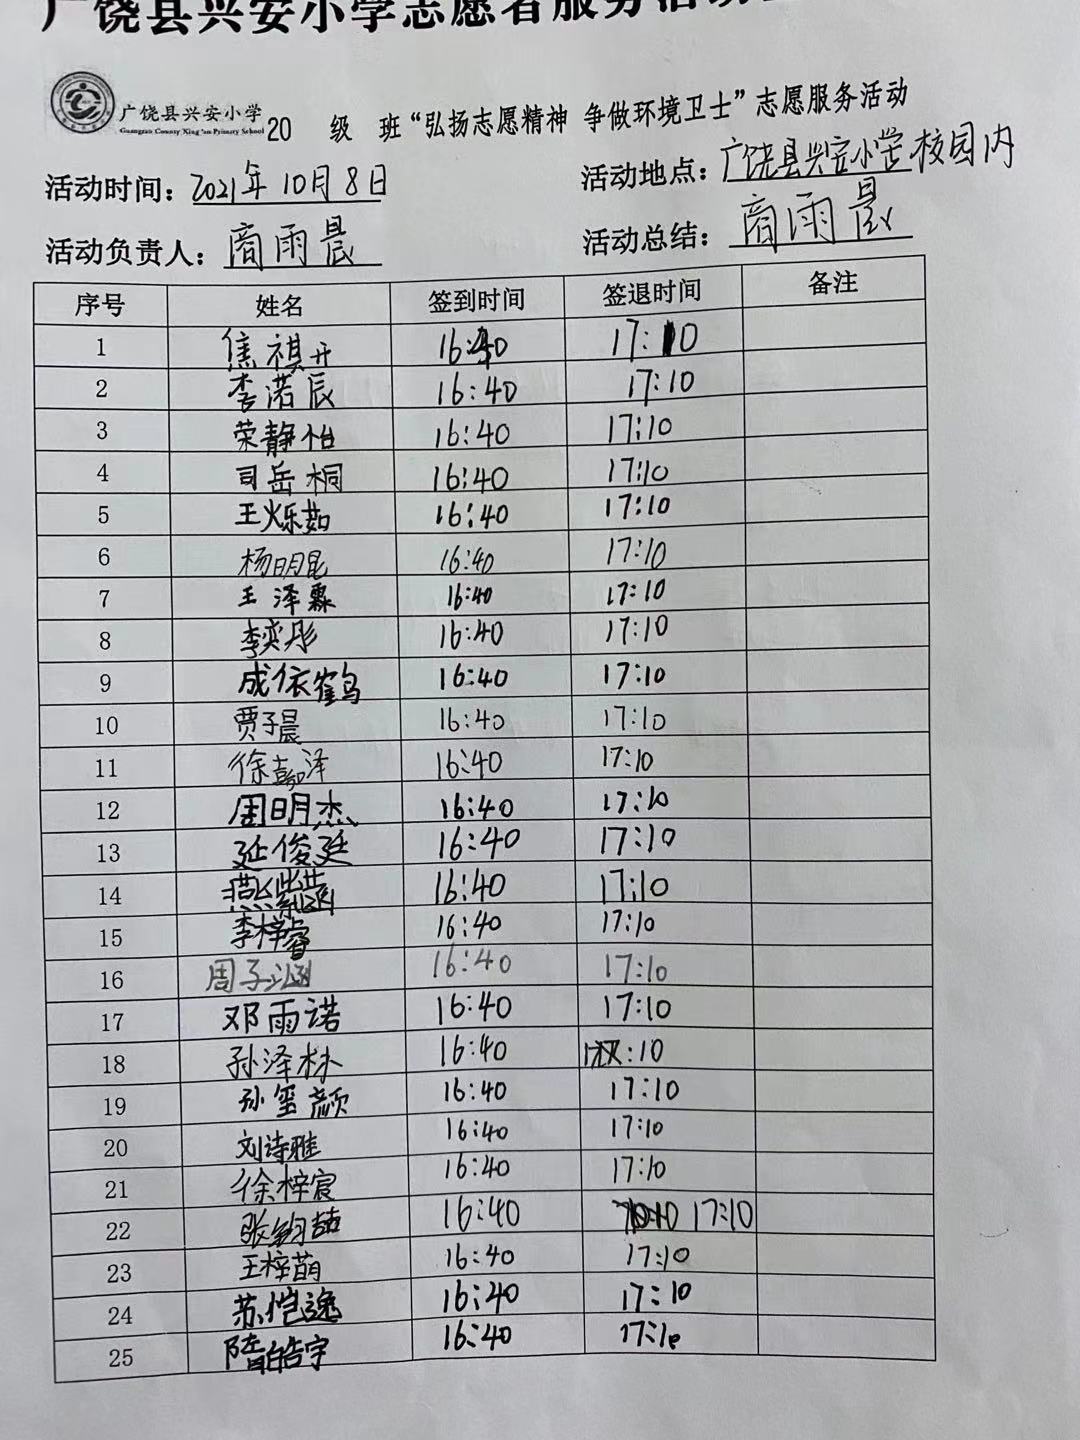 广饶县兴安小学志愿者服务活动
广饶县兴安小学
Guangrao County Xing'an Primary School
20 级 班“弘扬志愿精神 争做环境卫士”志愿服务活动
活动时间：2021年10月8日 活动地点：广饶县兴安小学校园内
活动负责人：商雨晨 活动总结：商雨晨
序号 姓名 签到时间 签退时间 备注
1 焦祺开 16:40 17:10
2 李诺辰 16:40 17:10
3 荣静怡 16:40 17:10
4 司岳桐 16:40 17:10
5 王烁茹 16:40 17:10
6 杨明昆 16:40 17:10
7 王泽霖 16:40 17:10
8 李奕彤 16:40 17:10
9 成依鹤 16:40 17:10
10 贾子晨 16:40 17:10
11 徐嘉泽 16:40 17:10
12 周明杰 16:40 17:10
13 延俊廷 16:40 17:10
14 燕紫涵 16:40 17:10
15 李梓睿 16:40 17:10
16 周子涵 16:40 17:10
17 邓雨诺 16:40 17:10
18 孙泽林 16:40 :10
19 孙玺颜 16:40 17:10
20 刘诗雅 16:40 17:10
21 徐梓宸 16:40 17:10
22 张钧喆 16:40 17:10
23 王梓萌 16:40 17:10
24 苏恺逸 16:40 17:10
25 隋皓宇 16:40 17:10